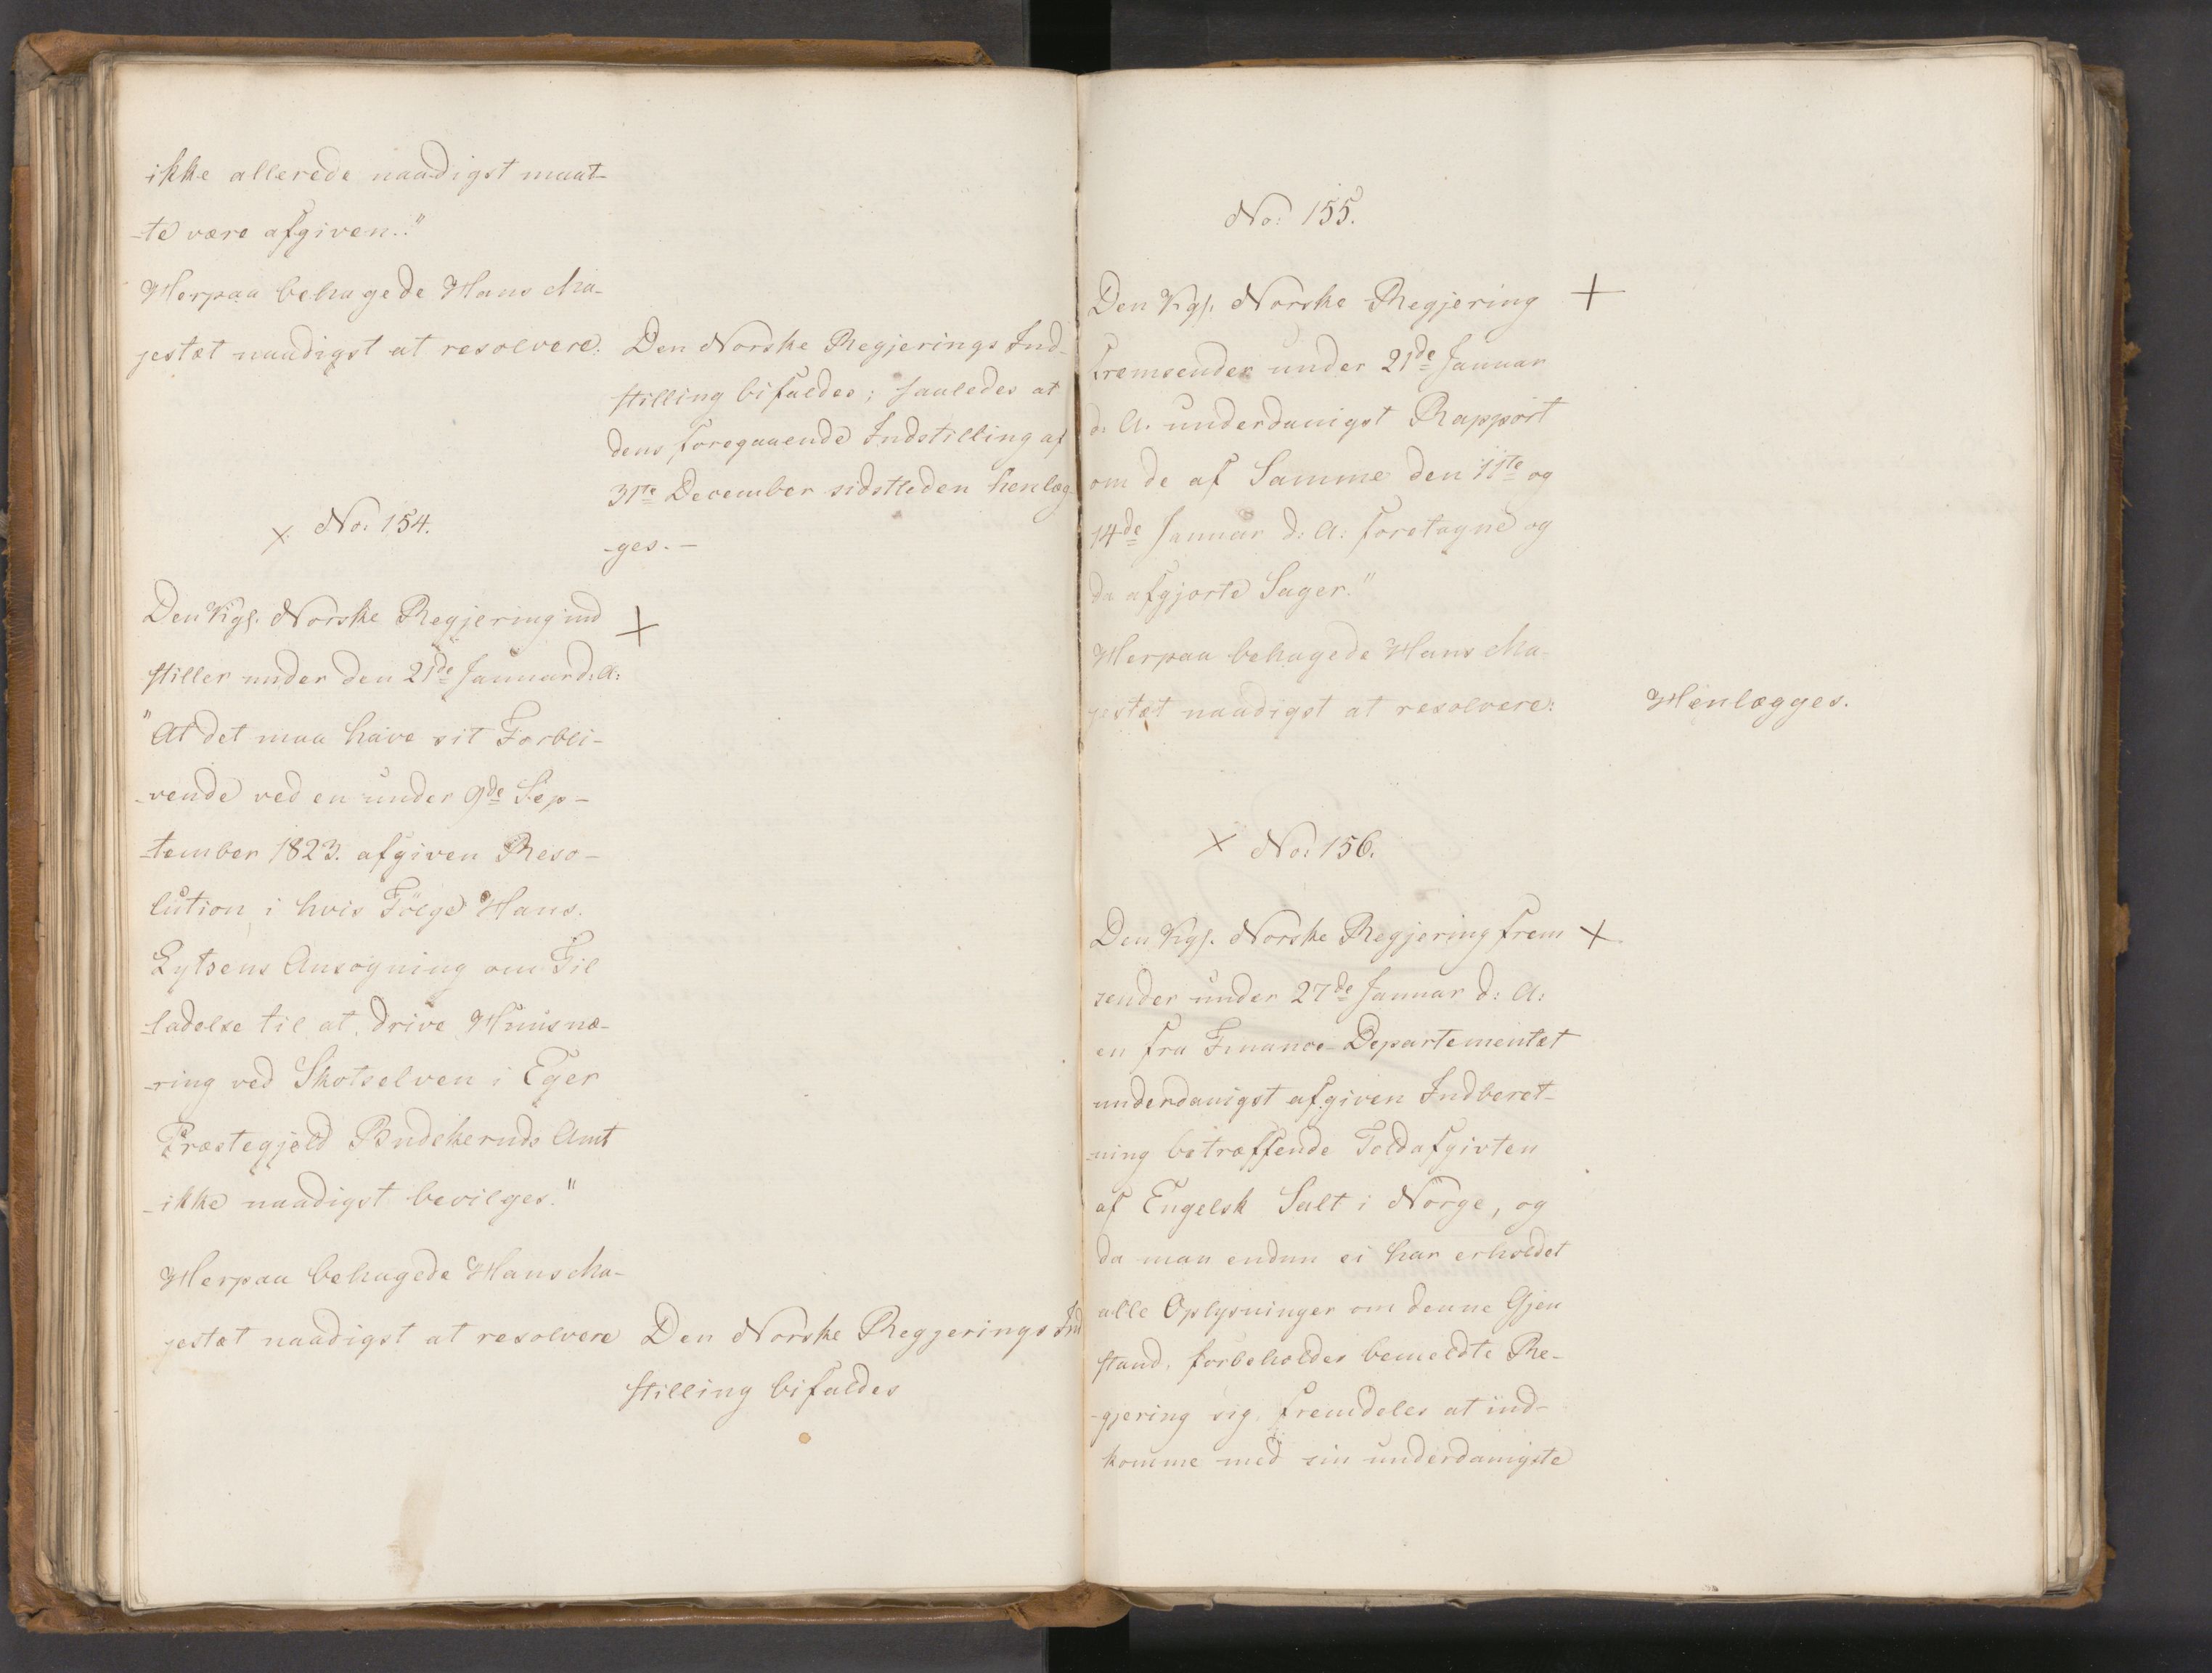 ikke allerede naadigst maat-
-te være afgiven."
Herpaa behagede Hans Ma-
jestæt naadigst at resolvere:
Den Norske Regjerings Ind-
stilling bifaldes; saaledes at
dens foregaaende Indstilling af
31te December sidstleden henlæg-
-ges. -
x. No: 154.
Den Kgl. Norske Regjering ind +
stiller under den 21de Januar d: A:
"At det maa have sit Forbli-
-vende ved en under 9de Sep-
-tember 1823. afgiven Reso-
lution, i hvis Følge Hans
Lytsens Ansøgning om Til
-ladelse til at drive Huusnæ-
-ring ved Skotselven i Eger
Præstegjeld Budskeruds Amt
-ikke naadigst bevilges."
Herpaa behagede Hans Ma-
jestæt naadigst at resolvere
Den Norske Regjerings Ind
stilling bifaldes
No: 155.
Den Kgl. Norske Regjering +
fremsender under 21de Januar
d: A. underdanigst Rapport
om de af Samme den 11te og
14de Januar d: A: foretagne og
da afgjorte Sager."
Herpaa behagede Hans Ma-
jestæt naadigst at resolvere:
Henlægges.
x No: 156.
Den Kgl. Norske Regjering frem +
sender under 27de Januar d: A:
en fra Finance-Departementet
underdanigst afgiven Indberet-
-ning betræffende Toldafgivten
af Engelsk Salt i Norge, og
da man endnu ei har erholdet
alle Oplysninger om denne Gjen
stand, forbeholder bemeldte Re-
-gjering sig fremdeles at ind-
komme med sin underdanigste